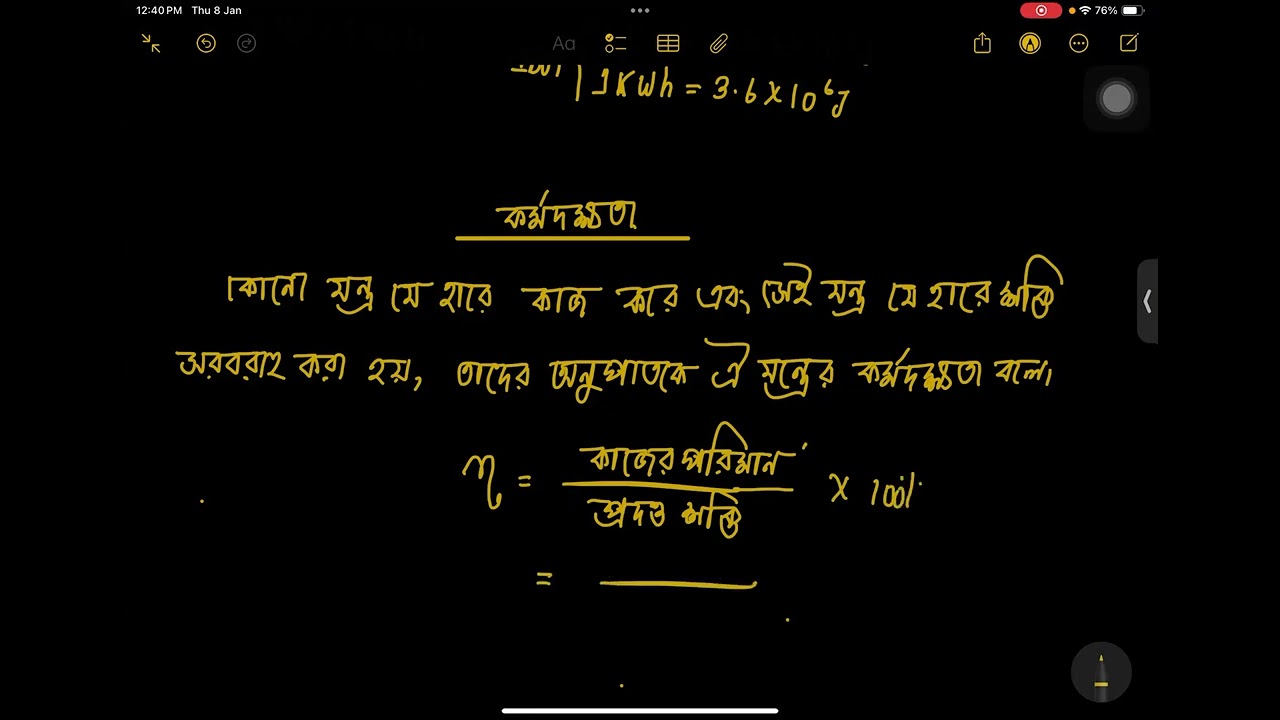 12:40 PM Thu 8 Jan
76%
Aa
1 KWh = 3.6 X 10⁶ J
কর্মদক্ষতা
কোনো যন্ত্র যে হারে কাজ করে এবং সেই যন্ত্র যে হারে শক্তি
সরবরাহ করা হয়, তাদের অনুপাতকে ঐ যন্ত্রের কর্মদক্ষতা বলে।
η = কাজের পরিমান / প্রদত্ত শক্তি X 100%
=